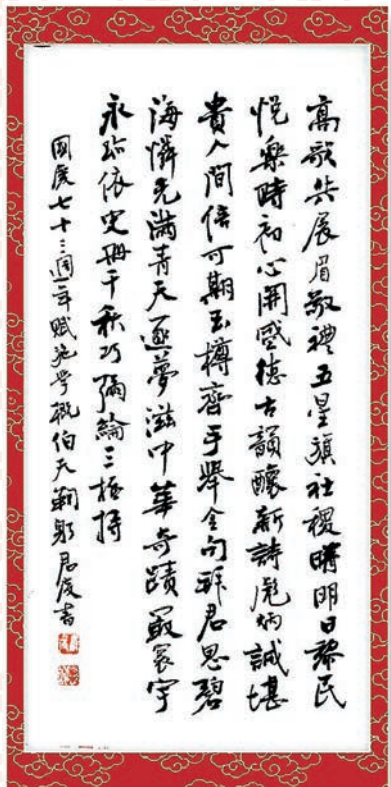 高歌共展眉敬禮五星旗社稷曙明日黎民
悅樂時初心開國德古韻釀新詩彪炳誠堪
貴人間信可期玉樽齊手舉金句拜君思碧
海憐光滿青天逐夢滋中華奇蹟最寰宇
永珍依史冊千秋巧彌綸三極持
國慶七十三週年賦施學概伯天鞠躬君度書